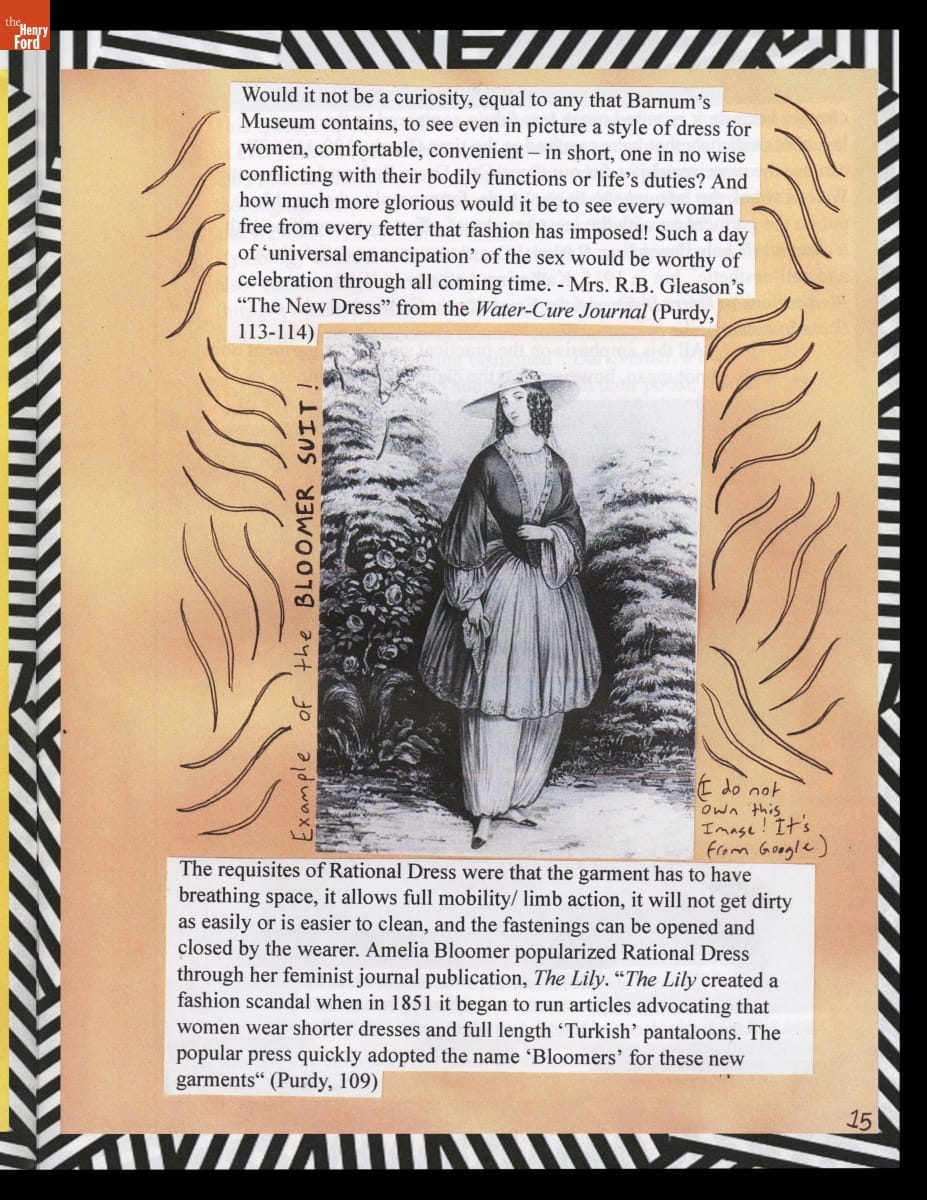 the
Henry
Ford
Would it not be a curiosity, equal to any that Barnum’s
Museum contains, to see even in picture a style of dress for
women, comfortable, convenient – in short, one in no wise
conflicting with their bodily functions or life’s duties? And
how much more glorious would it be to see every woman
free from every fetter that fashion has imposed! Such a day
of ‘universal emancipation’ of the sex would be worthy of
celebration through all coming time. - Mrs. R.B. Gleason’s
“The New Dress” from the Water-Cure Journal (Purdy,
113-114)
Example of the BLOOMER SUIT!
(I do not
own this
Image! It's
from Google)
The requisites of Rational Dress were that the garment has to have
breathing space, it allows full mobility/ limb action, it will not get dirty
as easily or is easier to clean, and the fastenings can be opened and
closed by the wearer. Amelia Bloomer popularized Rational Dress
through her feminist journal publication, The Lily. “The Lily created a
fashion scandal when in 1851 it began to run articles advocating that
women wear shorter dresses and full length ‘Turkish’ pantaloons. The
popular press quickly adopted the name ‘Bloomers’ for these new
garments“ (Purdy, 109)
15